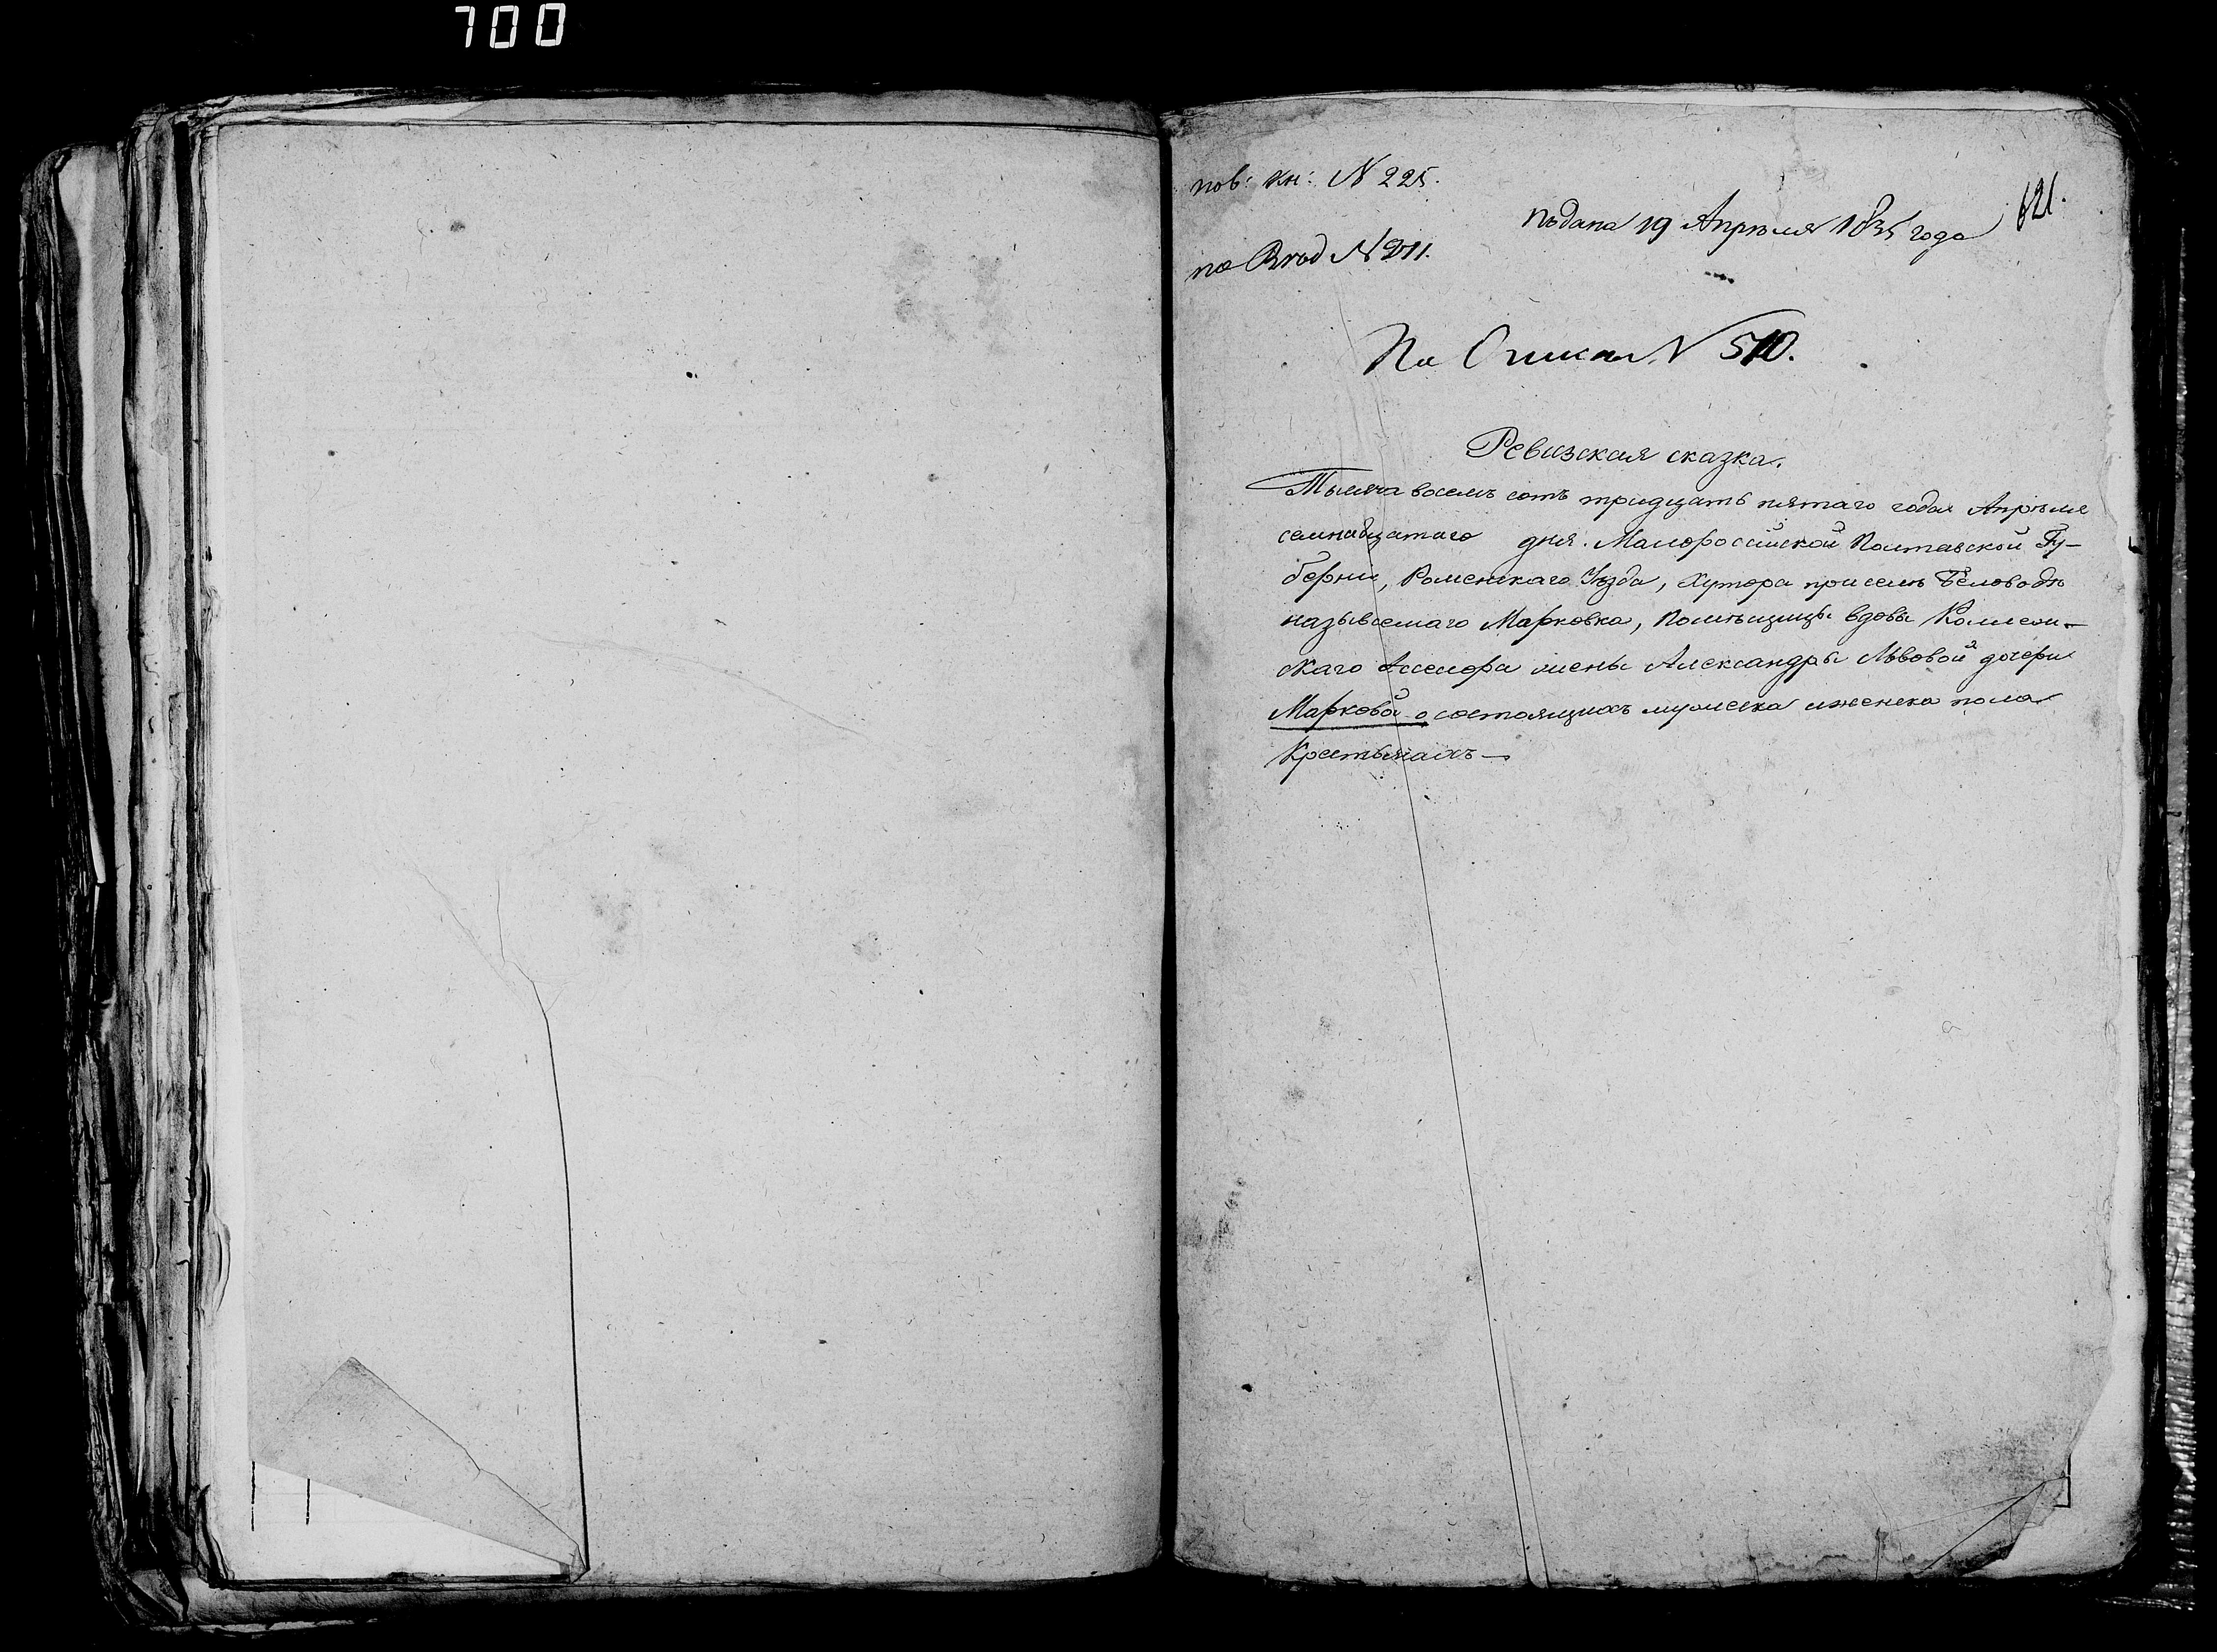 700
пов: кн: N 225.
подана 19 Апреля 1835 года
621.
по N 211.
По Описи N 510.
Ревизская сказка.
Тысяча восемь сотъ тридцать пятаго года Апреля
семнадцатаго дня. Малороссийской Полтавской Гу-
берніи, Роменскаго Уѣзда, Хутора при селѣ Беловодѣ
называемаго Марковка, Помѣщицы вдовы Коллеж-
скаго Асесора жены Александры Львовой дочери
Марковой о состоящихъ мужеска и женска пола
Крестьянахъ —